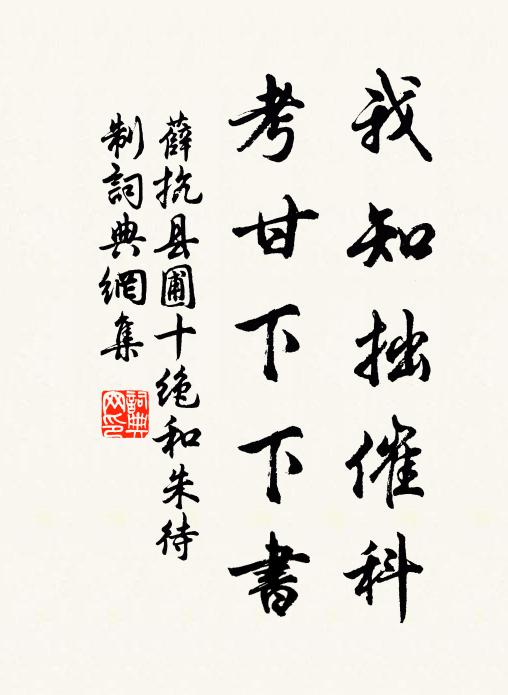 我知拙催科
考甘下下書
薛抗县圃十绝和朱待
制詞典網集
詞典
网印